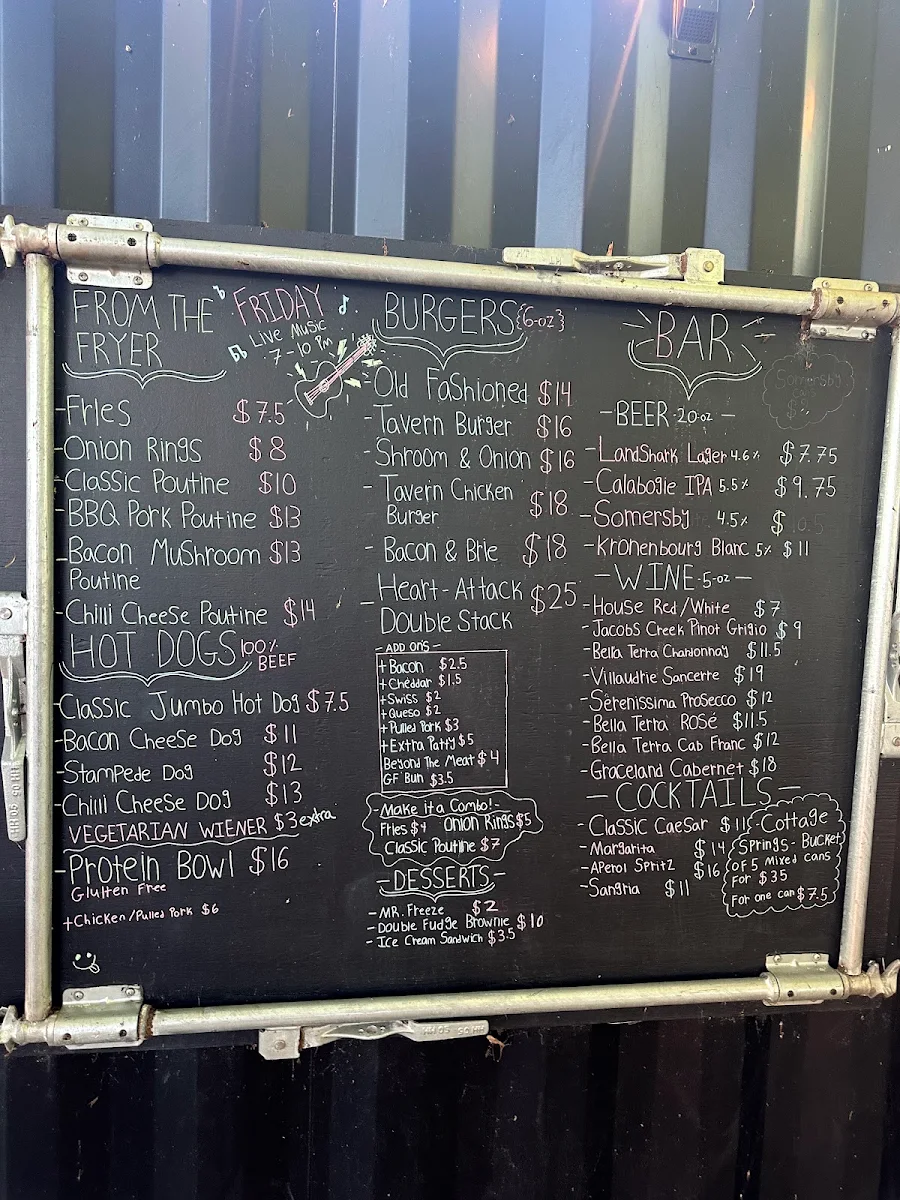 FROM THE
FRYER
FRIDAY
LIVE MUSIC
7-10 PM
-Fries $7.5
-Onion Rings $8
-Classic Poutine $10
-BBQ Pork Poutine $13
-Bacon Mushroom $13
Poutine
-Chilli Cheese Poutine $14
HOT DOGS 100%
BEEF
-Classic Jumbo Hot Dog $7.5
-Bacon Cheese Dog $11
-Stampede Dog $12
-Chilli Cheese Dog $13
VEGETARIAN WIENER $3 extra
-Protein Bowl $16
Gluhten Free
+Chicken/Pulled Pork $6
BURGERS {6-oz}
-Old Fashioned $14
-Tavern Burger $16
-Shroom & Onion $16
-Tavern Chicken $18
Burger
-Bacon & Brie $18
-Heart-Attack $25
Double Stack
-ADD ONS-
+Bacon $2.5
+Cheddar $1.5
+Swiss $2
+Queso $2
+Pulled Pork $3
+Extra Patty $5
Beyond The Meat $4
GF Bun $3.5
-Make it a Combo!-
Fries $4 Onion Rings $5
Classic Poutine $7
-DESSERTS-
-MR. Freeze $2
-Double Fudge Brownie $10
-Ice Cream Sandwich $3.5
BAR
Somersby
-BEER-20-oz-
-LandShark Lager 4.6% $7.75
-Calabogie IPA 5.5% $9.75
-Somersby 4.5% $
-Kronenbourg Blanc 5% $11
-WINE-5-oz-
-House Red/White $7
-Jacobs Creek Pinot Grigio $9
-Bella Terra Chardonnay $11.5
-Villaudrie Sancerre $19
-Serenissima Prosecco $12
-Bella Terra Rosé $11.5
-Bella Terra Cab Franc $12
-Graceland Cabernet $18
-COCKTAILS-
-Classic Caesar $11
-Margarita $14
-Aperol Spritz $16
-Sangria $11
-Cottage
Springs-Bucket
of 5 mixed cans
For $35
For one can $7.5
HH 05
HH 05 90 HH